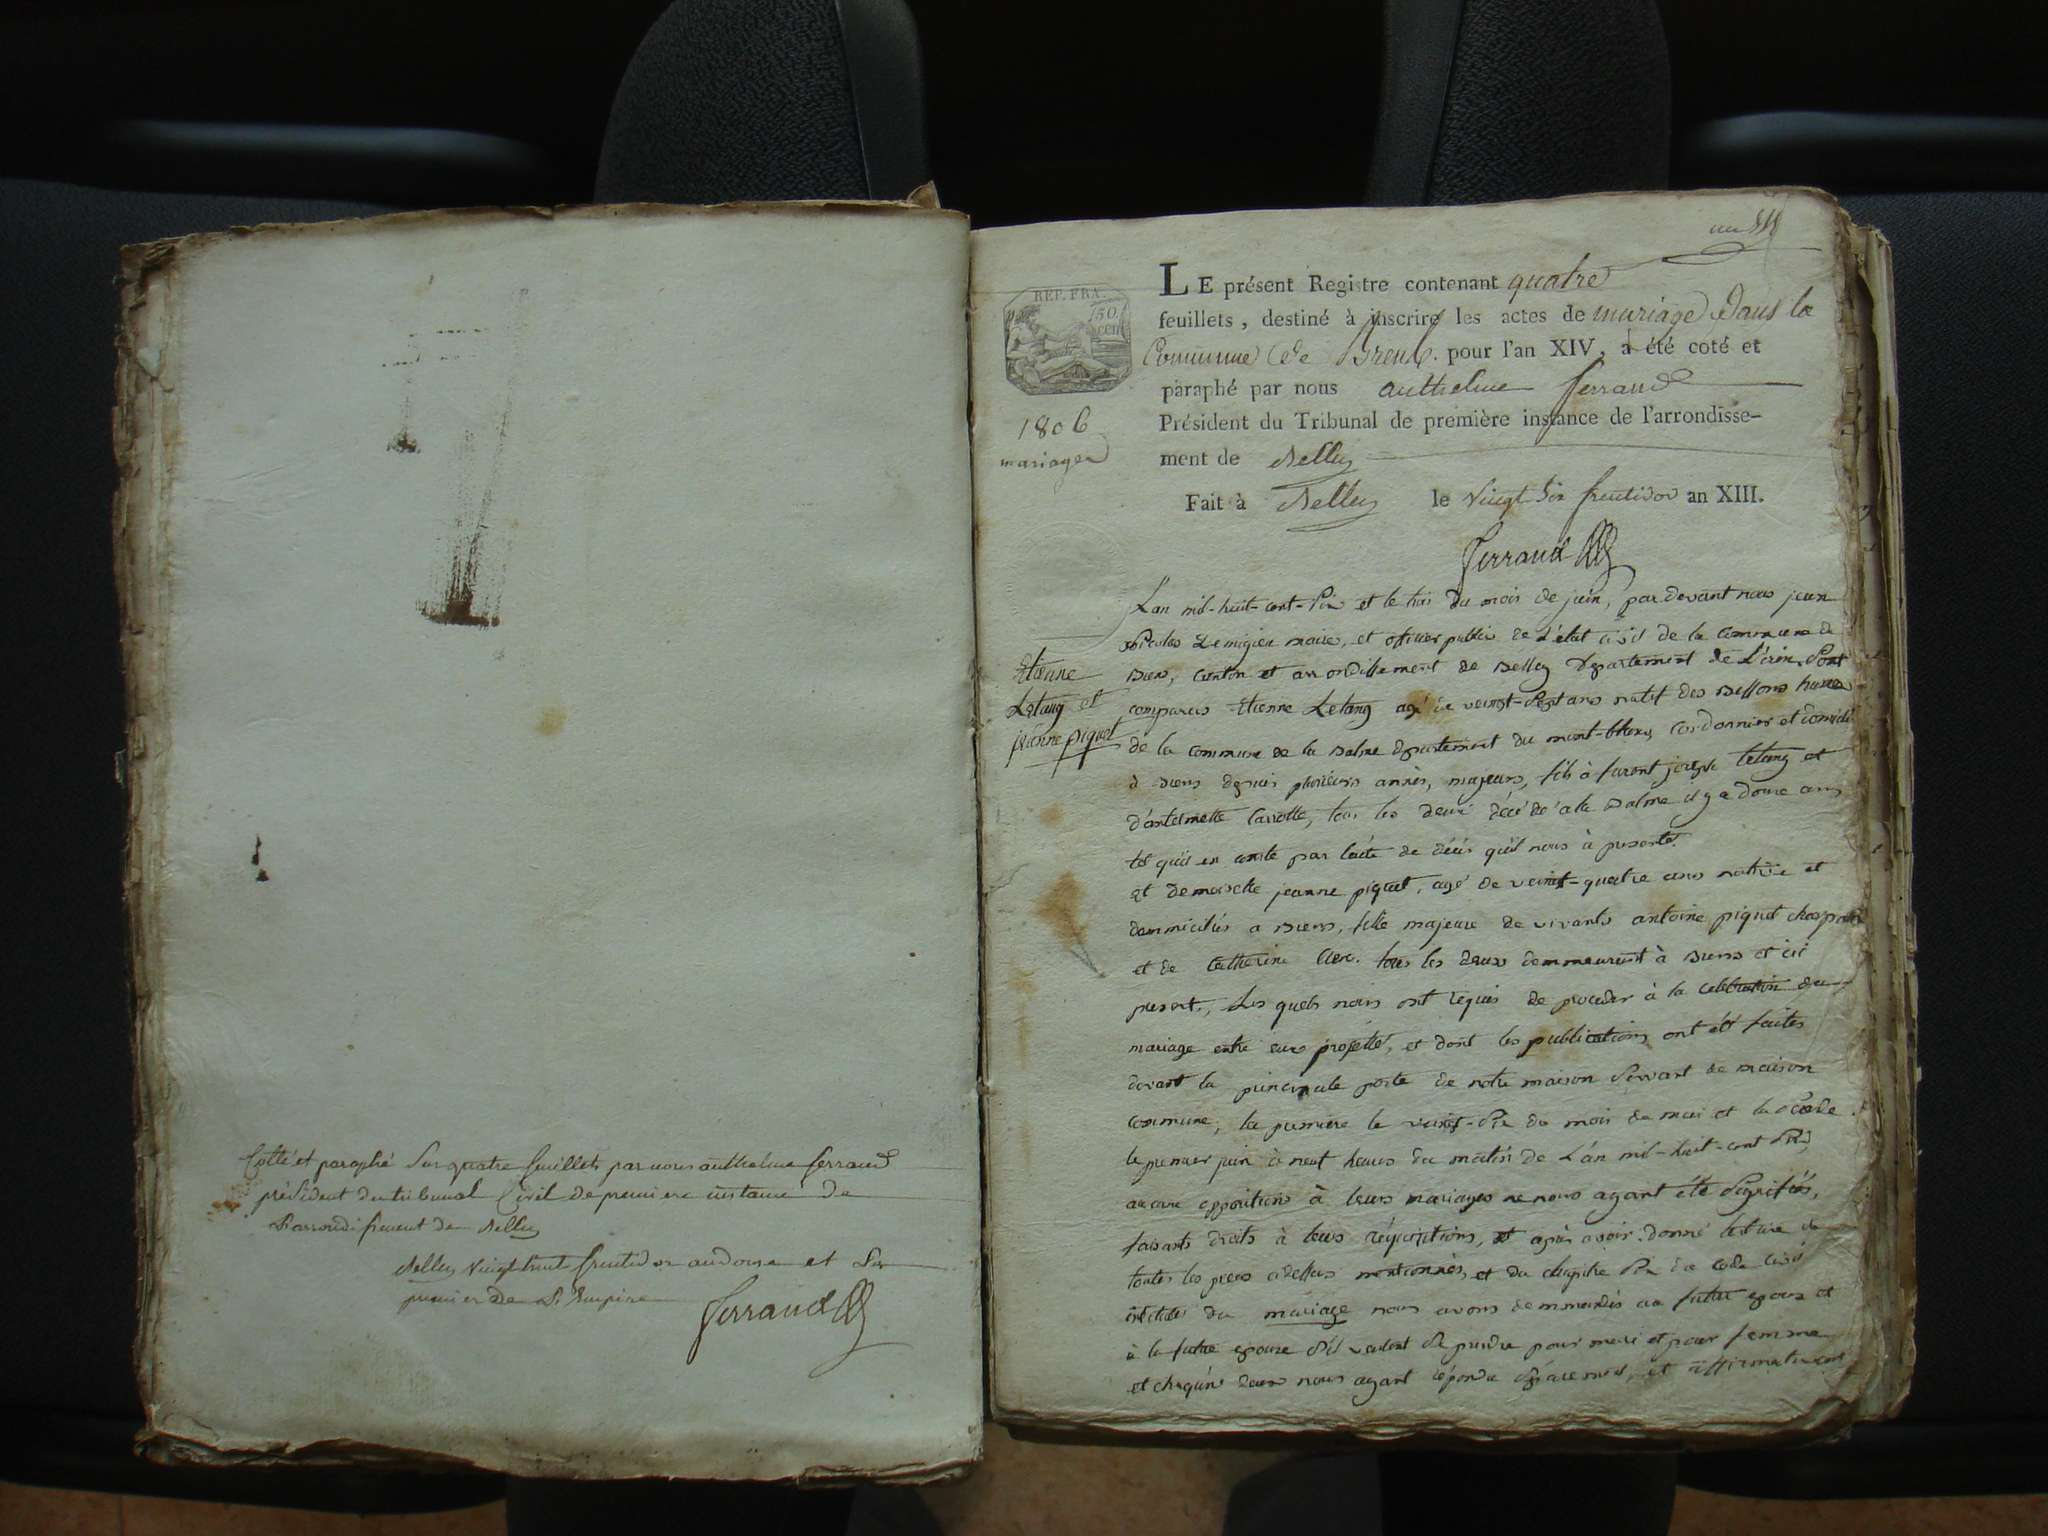 Cotté et paraphé Sur quatre feuillets par nous anthelme ferrand
président du tribunal Civil de premiere instance de
L'arrondissement de Belley
Belley vingt huit fructidor an douze et L'an
premier de L'Empire
ferrand
un
REP. FRA.
50
cen
LE présent Registre contenant quatre
feuillets, destiné à inscrire les actes de mariage Dans la
Commune de Brens. pour l'an XIV, a été coté et
paraphé par nous anthelme ferrand
1806
mariages
Président du Tribunal de première instance de l'arrondisse-
ment de Belley
Fait à Belley le vingt six fructidor an XIII.
ferrand
Etienne
Letang et
jeanne piquet
L'an mil-huit-cent-six et le trois du mois de juin, par devant nous jean
Nicolas maire, et officier public de L'état civil de la commune de
Brens, canton et arrondissement de Belley departement de L'ain. Sont
comparus Etienne Letang agé de veingt-sept ans natif des
de la commune de la Balme departement du mont-blanc, cordonnier et domicilié
à Brens depuis plusieurs années, majeurs, fils à furent joseph Letang et
d'antelmette, tous les deux décédé a la Balme il y a douze ans
tel qu'il en conste par l'acte de décès qu'il nous à presenté.
et demoiselle jeanne piquet, agé de veingt-quatre ans native et
dommiciliés a Brens, fille majeure de vivants antoine piquet
et de Catherine tous les deux demmeurent à Brens et ici
present, Les quels nous ont requis de proceder à la celebration du
mariage entre eux projetté, et dont les publications ont été faites
devant la principale porte de notre maison servant de maison
commune, la premiere le veingt-six du mois de mai et la
le premier juin à neuf heures du matin de L'an mil-huit-cent six,
aucune opposition à leurs mariages ne nous ayant été signifiés,
faisants droits à leurs réquisitions, et après avoir donné lecture de
toutes les pieces cidessus mentionnés, et du chapitre six du code civil
intitulé du mariage nous avons demmandés au futur epoux et
à la future epouse s'ils veulent se prendre pour mari et pour femme
et chaqu'un deux nous ayant répondu separement, et affirmativement